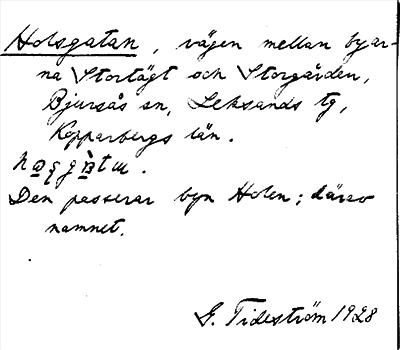 Holsgatan, vägen mellan byar-
na Stortägt och Storgården,
Bjursås sn, Leksands tg,
Kopparbergs län.
Den passerar byn Holen; därav
namnet.
G. Tideström 1928